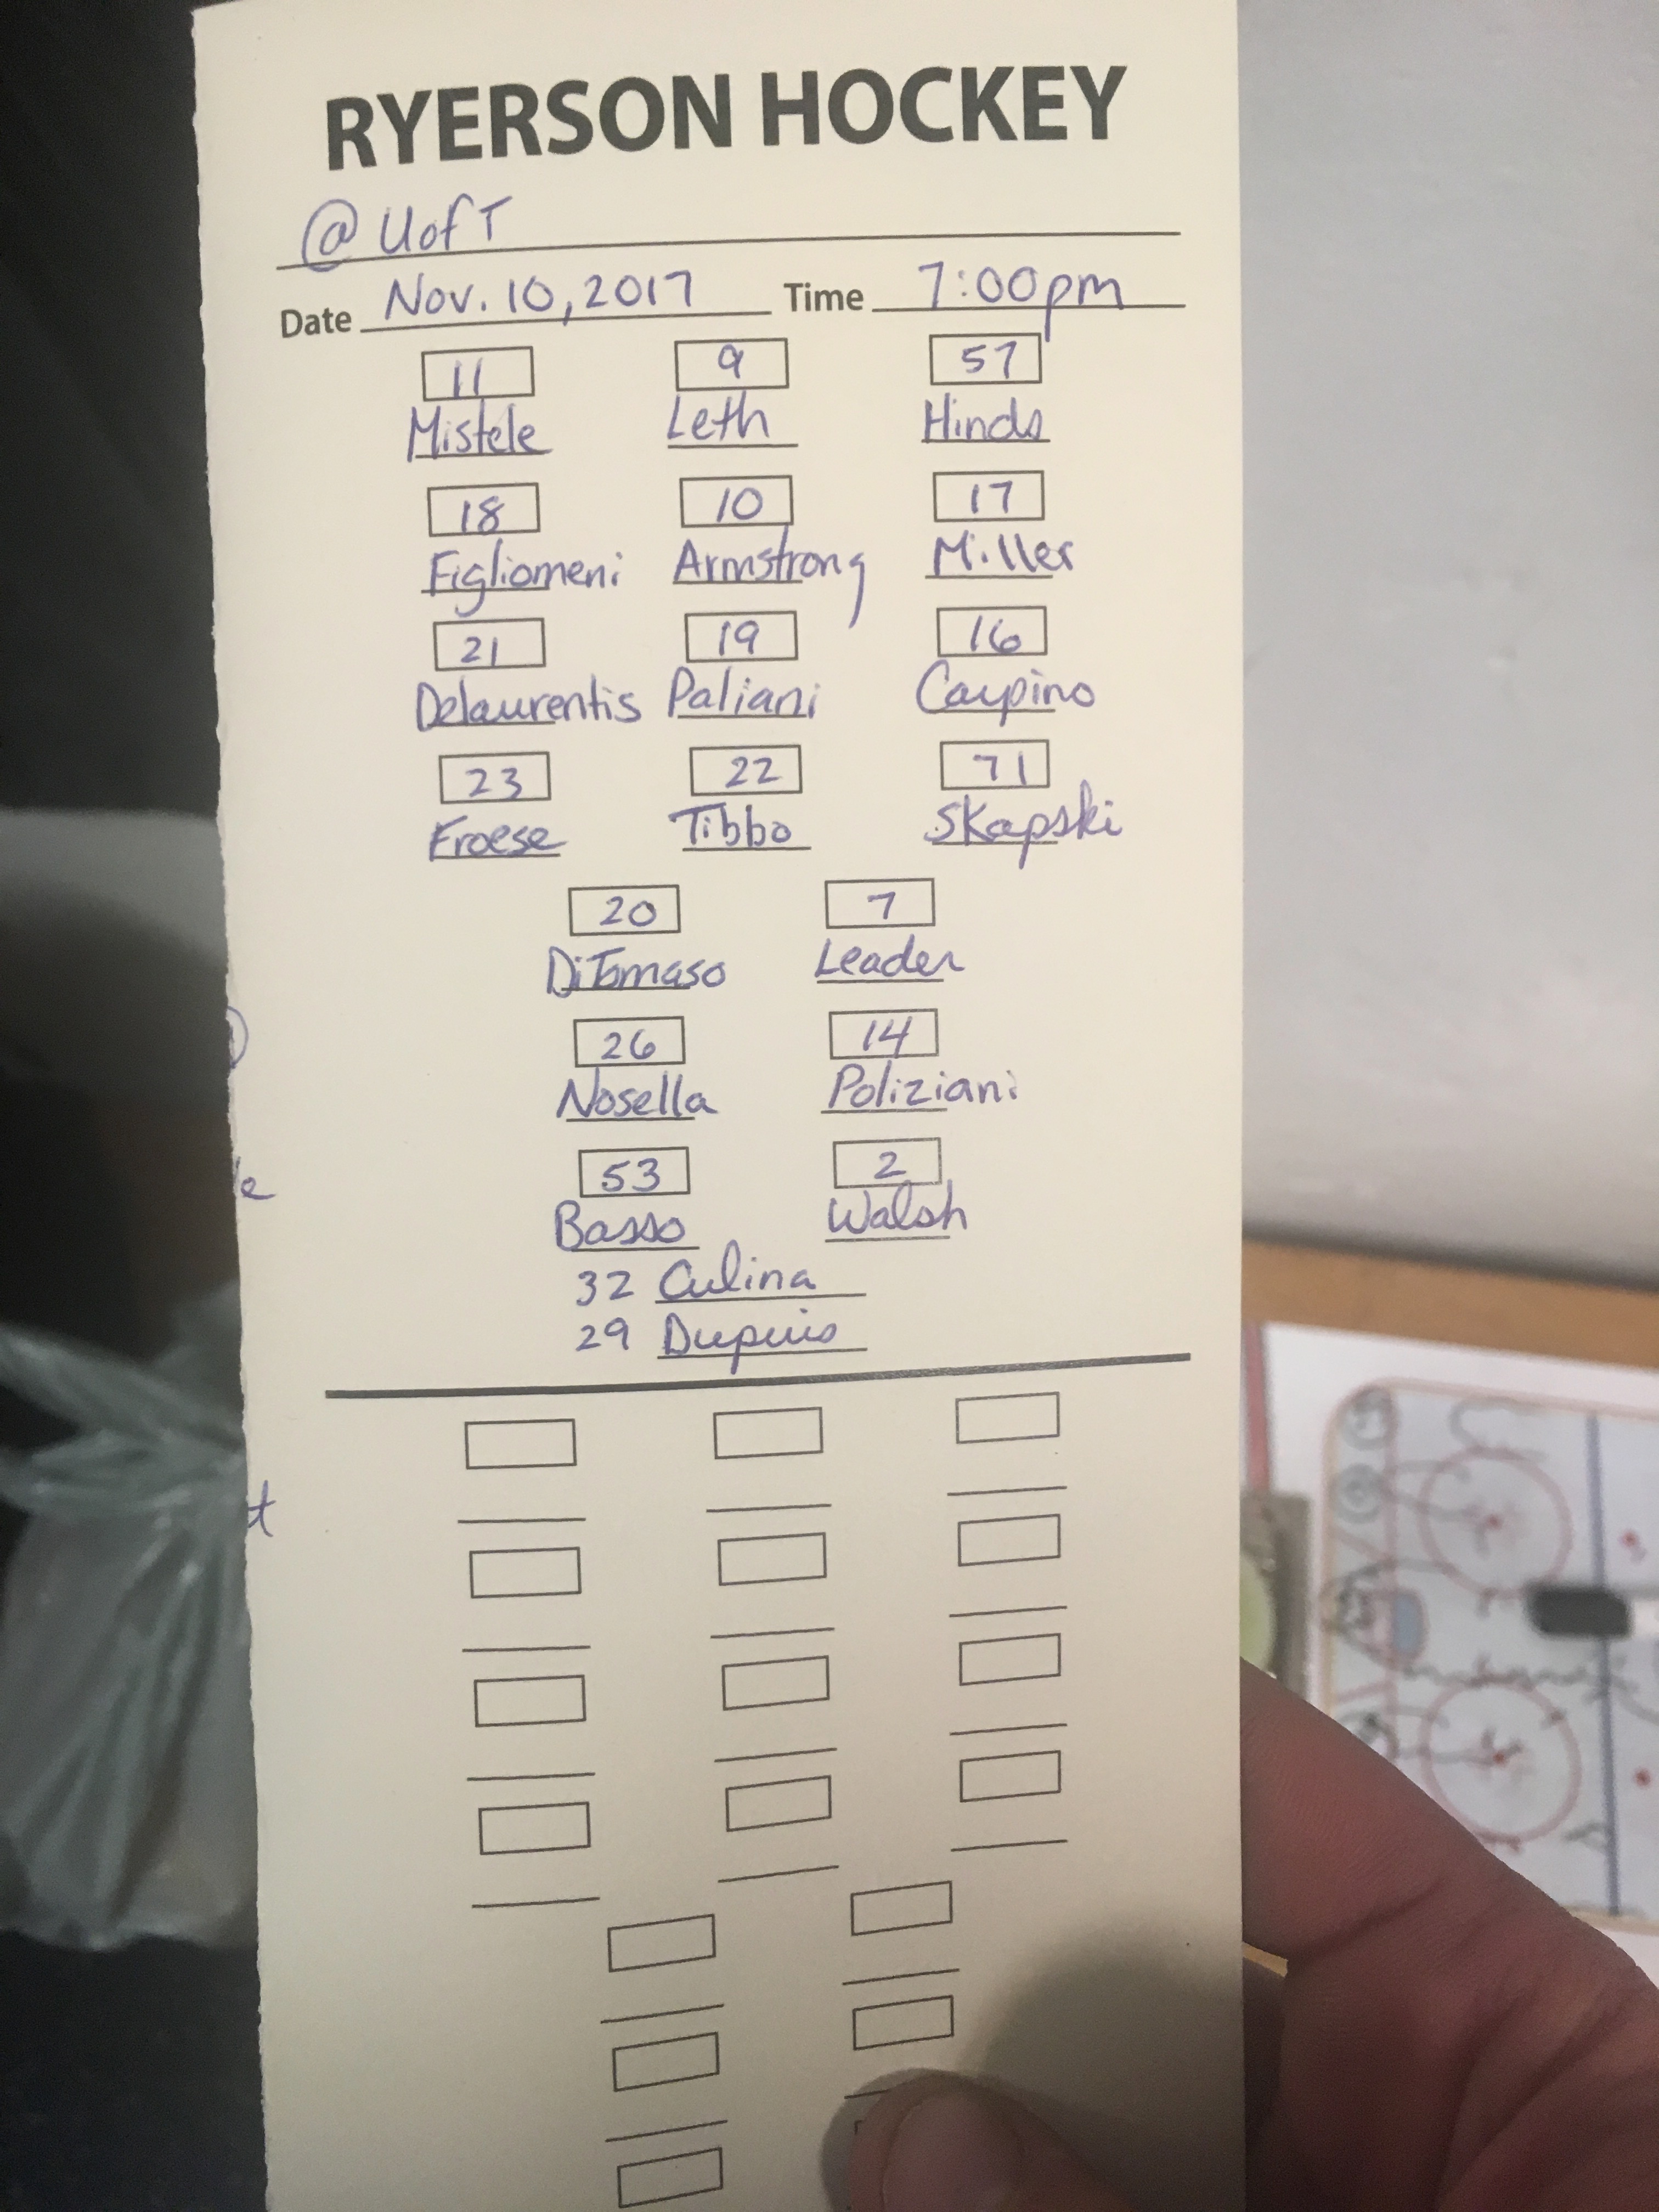 RYERSON HOCKEY
@ UofT
Date Nov. 10, 2017 Time 7:00pm
11 9 57
Mistele Leth Hinds
18 10 17
Figliomeni Armstrong Miller
21 19 16
Delaurentis Paliani Carpino
23 22 71
Froese Tibbo Skapski
20 7
DiTomaso Leader
26 14
Nosella Poliziani
53 2
Basso Walsh
32 Culina
29 Dupuis